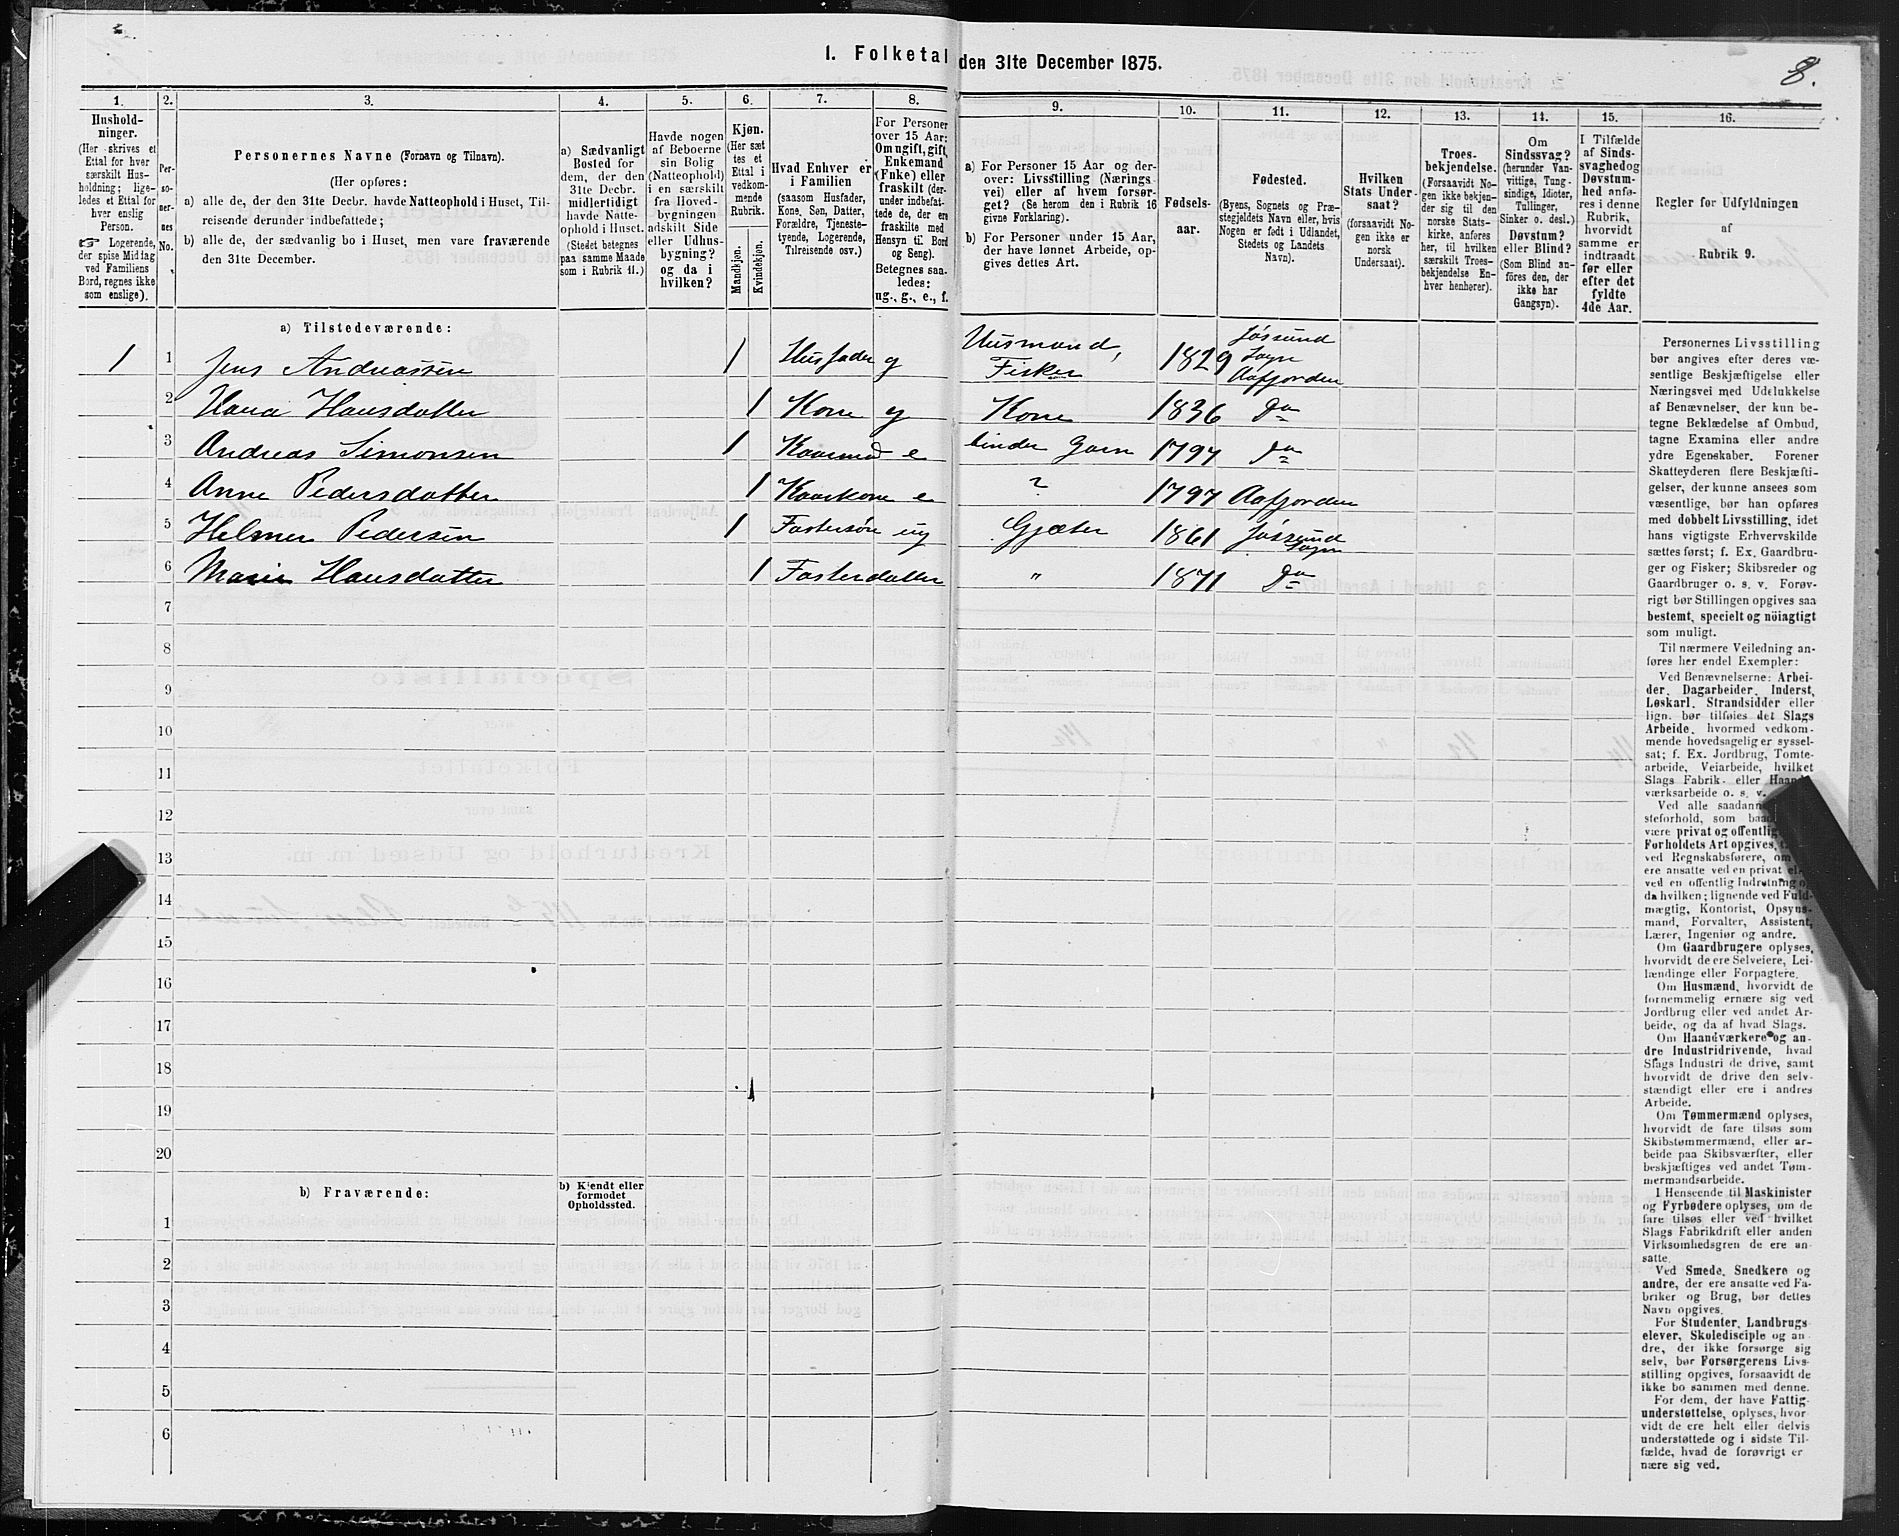 1. Folketal den 31te December 1875.
8.
1. 2. 3. 4. 5. 6. 7. 8. 9. 10. 11. 12. 13. 14. 15. 16.
Hushold-
ninger.
(Her skrives et
Ettal for hver
særskilt Hus-
holdning; lige-
ledes et Ettal for
hver enslig
Person.
☞ Logerende,
der spise Middag
ved Familiens
Bord, regnes ikke
som enslige).
Per-
so-
ner-
nes
No.
Personernes Navne (Fornavn og Tilnavn).
(Her opføres:
a) alle de, der den 31te Decbr. havde Natteophold i Huset, Til-
reisende derunder indbefattede;
b) alle de, der sædvanlig bo i Huset, men vare fraværende
den 31te December.
a) Sædvanligt
Bosted for
dem, der den
31te Decbr.
midlertidigt
havde Natte-
ophold i Huset.
(Stedet betegnes
paa samme Maade
som i Rubrik 11.)
Havde nogen
af Beboerne
sin Bolig
(Natteophold)
i en særskilt
fra Hoved-
bygningen
adskilt Side
eller Udhus-
bygning?
og da i
hvilken?
Kjøn.
(Her sæt
tes et
Ettal i
vedkom-
mende
Rubrik.
Mandkjøn.
Kvindekjøn.
Hvad Enhver er
i Familien
(saasom Husfader,
Kone, Søn, Datter,
Forældre, Tjeneste-
tyende, Logerende,
Tilreisende osv.)
For Personer
over 15 Aar:
Om ugift, gift,
Enkemand
(Enke) eller
fraskilt (der-
under indbefat-
tede de, der ere
fraskilte med
Hensyn til Bord
og Seng).
Betegnes saa-
ledes:
ug., g., e., f.
a) For Personer 15 Aar og der-
over: Livsstilling (Nærings-
vei) eller af hvem forsør-
get? (Se herom den i Rubrik 16
givne Forklaring).
b) For Personer under 15 Aar,
der have lønnet Arbeide, op-
gives dettes Art.
Fødsels-
aar.
Fødested.
(Byens, Sognets og Præ-
stegjeldets Navn eller, hvis
Nogen er født i Udlandet,
Stedets og Landets
Navn).
Hvilken
Stats Under-
saat?
(forsaavidt No-
gen ikke er
norsk
Undersaat).
Troes-
bekjendelse.
(Forsaavidt No-
gen ikke bekjen-
der sig til den
norske Stats-
kirke, anføres
her, til hvilken
særskilt Troes-
bekjendelse En-
hver henhører).
Om
Sindssvag?
(herunder Van-
vittige, Tung-
sindige, Idioter,
Tullinger,
Sinker o. desl.)
Døvstum?
eller Blind?
(Som Blind an-
føres den, der
ikke har
Gangsyn).
I Tilfælde
af Sinds-
svaghed og
Døvstum-
hed anfø-
res i denne
Rubrik,
hvorvidt
samme er
indtraadt
før eller
efter det
fyldte
4de Aar.
Regler for Udfyldningen
af
Rubrik 9.
a) Tilstedeværende:
1 1 Jens Andreassen 1 Husfader g Husmand, Fisker 1829 Jøssund Sogn Aafjorden
2 Hana Hansdatter 1 Kone g Kone 1836 Do
3 Andreas Simonsen 1 Kaarmd e binder Garn 1797 Do
4 Anne Pedersdatter 1 Kaarkone e ? 1797 Aafjorden
5 Helmer Pedersen 1 Fostersøn ug Gjæter 1861 Jøssund Sogn
6 Marie Hansdatter 1 Fosterdatter " 1871 Do
7
8
9
10
11
12
13
14
15
16
17
18
19
20
b) Fraværende:
b) Kjendt eller
formodet
Opholdssted.
1
2
3
4
5
6
Personernes Livsstilling
bør angives efter deres væ-
sentlige Beskjæftigelse eller
Næringsvei med Udelukkelse
af Benævnelser, der kun be-
tegne Beklædelse af Ombud,
tagne Examina eller andre
ydre Egenskaber. Forener
Skatteyderen flere Beskjæfti-
gelser, der kunne ansees som
væsentlige, bør han opføres
med dobbelt Livsstilling, idet
hans vigtigste Erhvervskilde
sættes først; f. Ex. Gaardbru-
ger og Fisker; Skibsreder og
Gaardbruger o. s. v. Forøv-
rigt bør Stillingen opgives saa
bestemt, specielt og nöiagtigt
som muligt.
Til nærmere Veiledning an-
føres her endel Exempler:
Ved Benævnelserne: Arbei-
der, Dagarbeider, Inderst,
Løskarl, Strandsidder eller
lign. bør tilføies det Slags
Arbeide, hvormed vedkom-
mende hovedsagelig er syssel-
sat; f. Ex. Jordbrug, Tomte-
arbeide, Veiarbeide, hvilket
Slags Fabrik- eller Haand-
værksarbeide o. s. v.
Ved alle saadanne
steforhold, som baade
være privat og offentlig
Forholdets Art opgives,
ved Regnskabsførere, om
ere ansatte ved en privat el
ved en offentlig Indretning o
da hvilken; lignende ved Fuld-
mægtig, Kontorist, Opsyns-
mand, Forvalter, Assistent,
Lærer, Ingeniør og andre.
Om Gaardbrugere oplyses,
hvorvidt de ere Selveiere, Lei-
lændinge eller Forpagtere.
Om Husmænd, hvorvidt de
fornemmelig ernære sig ved
Jordbrug eller ved andet Ar-
beide, og da af hvad Slags.
Om Haandværkere og an-
dre Industridrivende, hvad
Slags Industri de drive, samt
hvorvidt de drive den selv-
stændigt eller ere i andres
Arbeide.
Om Tømmermænd oplyses,
hvorvidt de fare tilsøs som
Skibstømmermænd, eller ar-
beide paa Skibsværfter, eller
beskjæftiges ved andet Tøm-
mermandsarbeide.
I Henseende til Maskinister
og Fyrbødere oplyses, om de
fare tilsøs eller ved hvilket
Slags Fabrikdrift eller anden
Virksomhedsgren de ere an-
satte.
Ved Smede, Snedkere og
andre, der ere ansatte ved Fa-
briker og Brug, bør dettes
Navn opgives.
For Studenter, Landbrugs
elever, Skoledisciple og an-
dre, der ikke forsørge sig
selv, bør Forsørgerens Livs-
stilling opgives, forsaavidt de
ikke bo sammen med denne.
For dem, der have Fattig-
understøttelse, oplyses, hvor-
vidt de ere helt eller delvis
understøttede og i sidste Til-
fælde, hvad de forøvrigt er
nære sig ved.